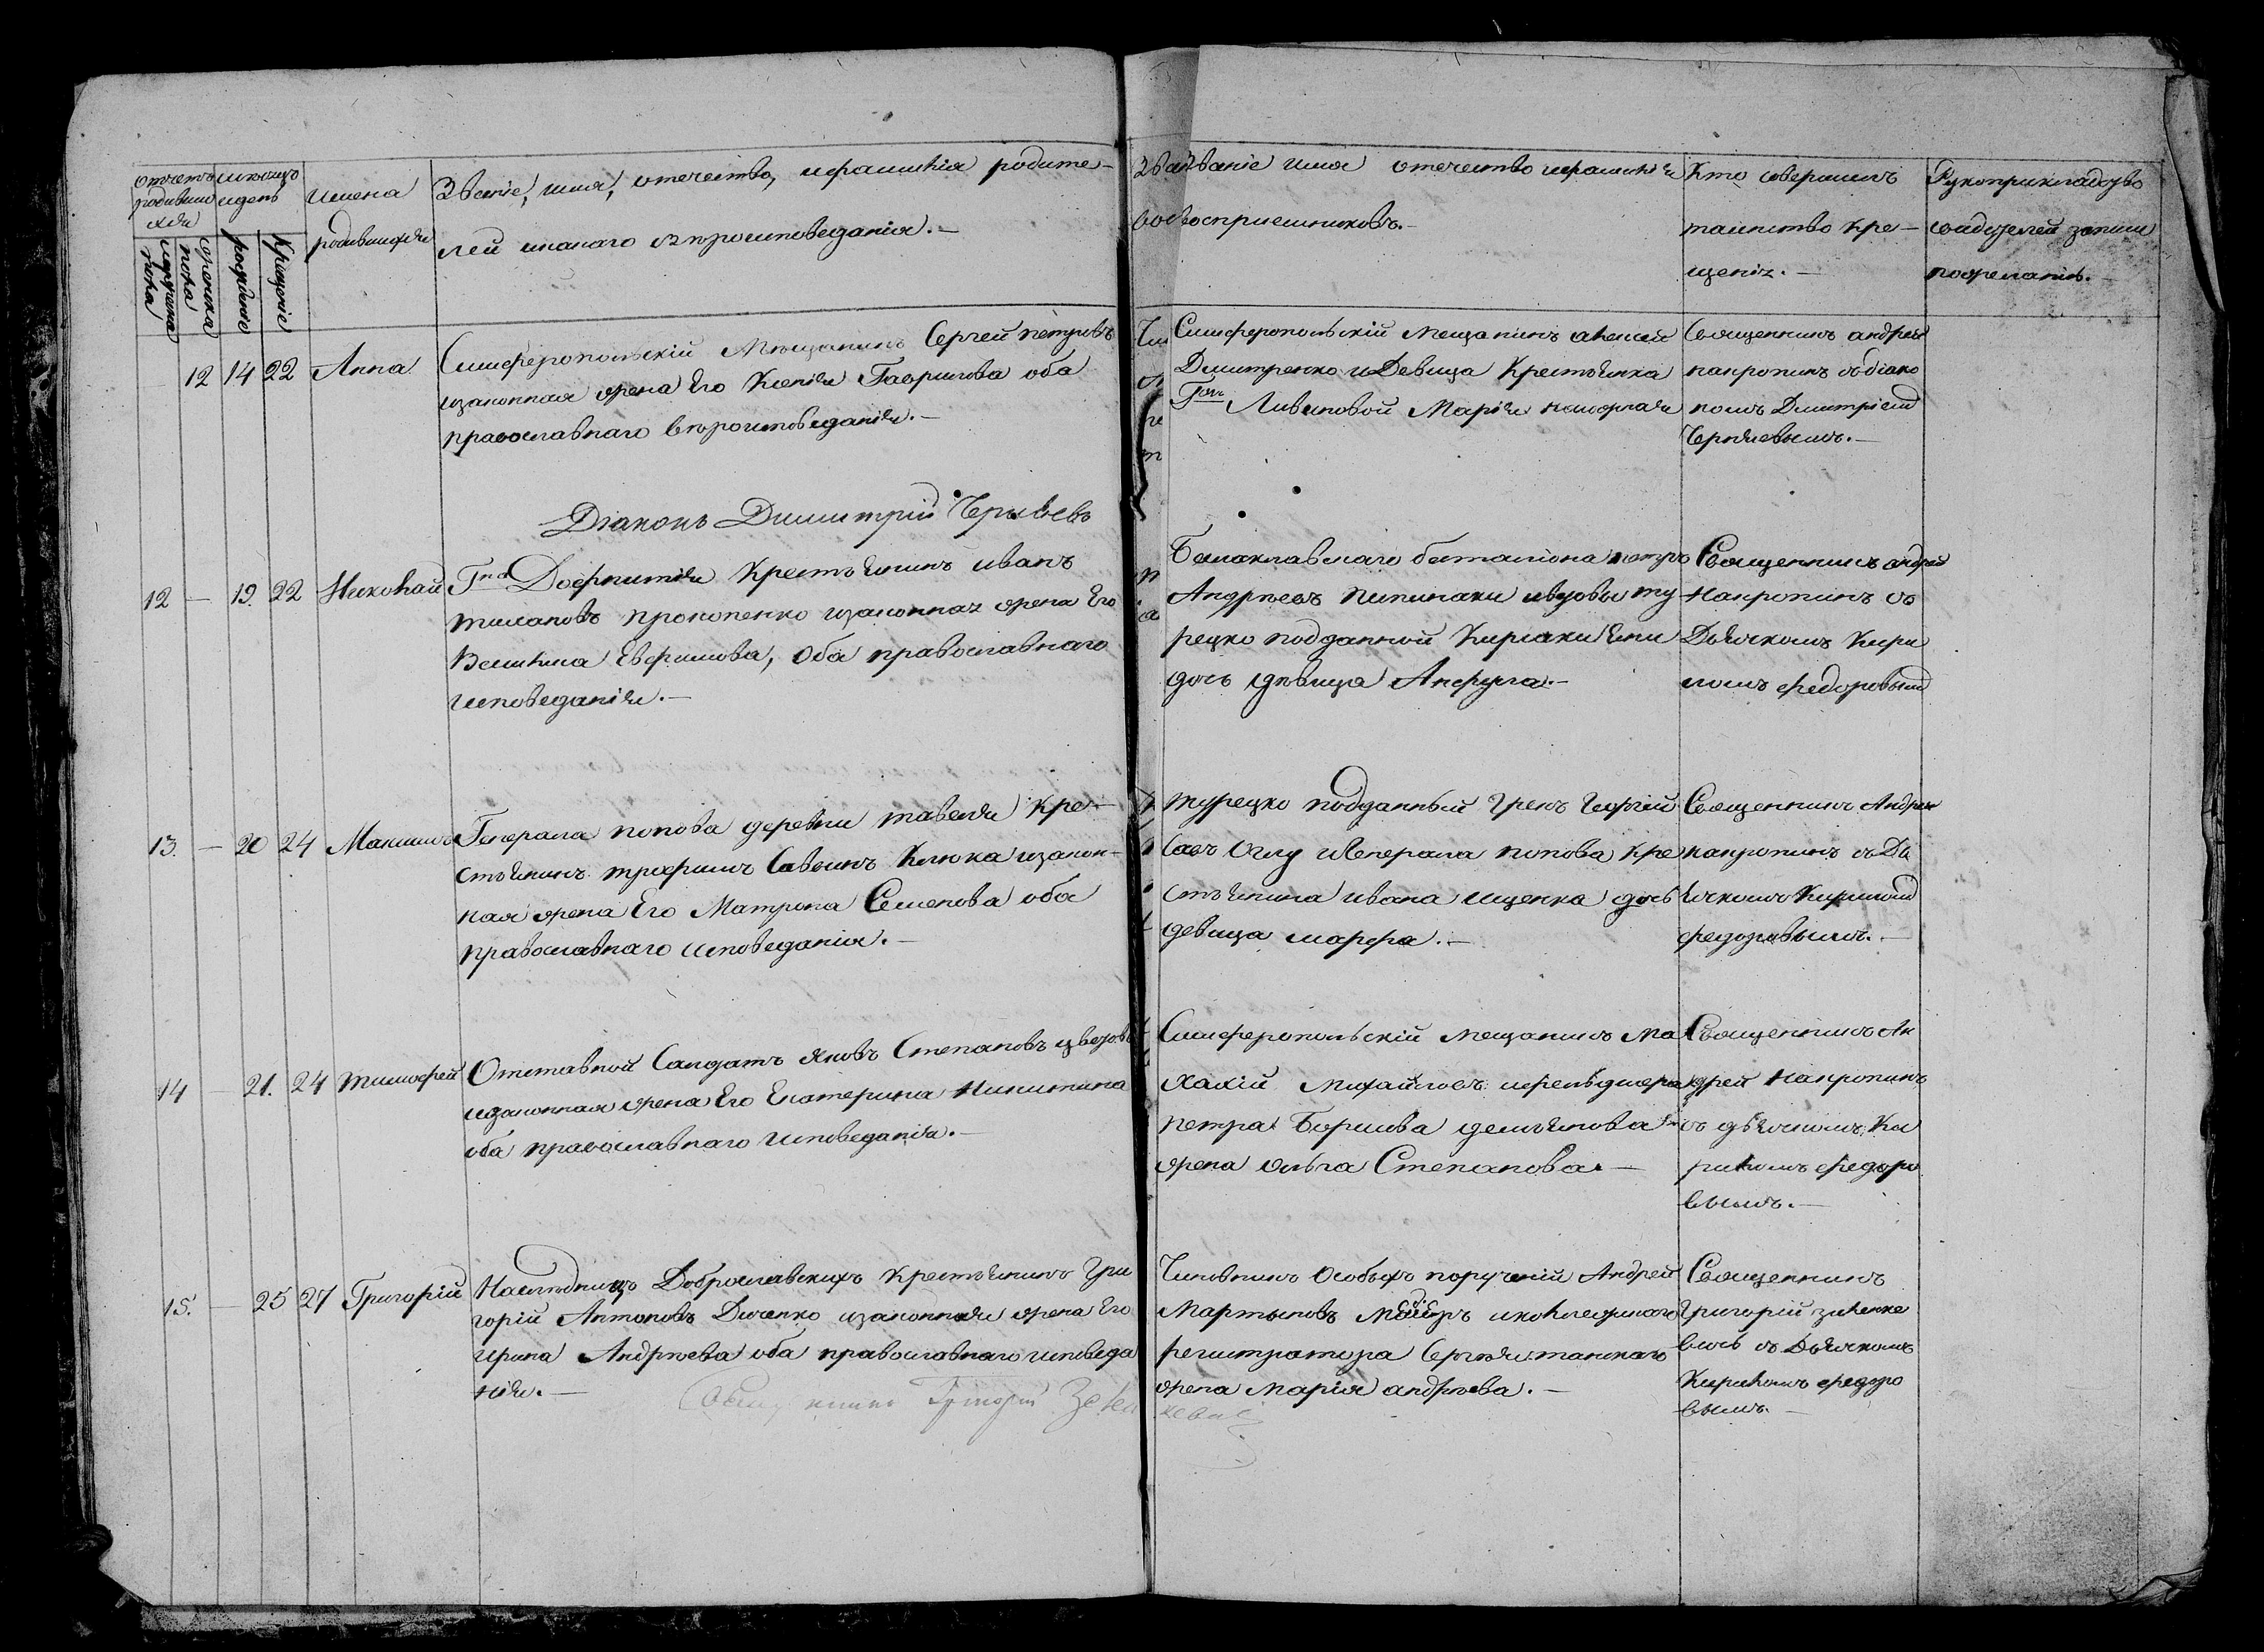 имена
родившихся
Званіе, имя, отечество, и фамилія родите-
лей и какаго вѣроисповеданія.-
Званіе имя отечество и фамилія
воспріемниковъ.-
Кто совершилъ
таинство кре-
щенія.-
Рукоприкладство
свидетелей записи
по желанію.
Крещеніе
рожденіе
женска
пола
мужеска
пола
12 14 22 Анна
Симферопольскій Мещанинъ Сергей петровъ
изаконная жена Его Ксенія Гаврилова оба
православнаго вѣроисповеданія.-
Симферопольскій Мещанинъ алексей
Дмитренко и Девица Крестьянка
Гжи Ливиновой Марія
Священникъ андрей
накропинъ съ діако
номъ Дмитріемъ
Черняевымъ.-
Діаконъ Димитрій Черняевъ
12 - 19. 22 Николай
Гна Крестьянинъ иванъ
прокопенко изаконная жена Его
Евфимова, оба православнаго
исповеданія.-
Балаклавскаго баталіона петръ
Андреевъ ту
рецко подданной
дочь девица Анфуса.-
Священникъ андрей
Накропинъ съ
Дьячкомъ Кири
ломъ федоровымъ
13. - 20 24 Максимъ
Генерала попова деревни тавеля кре-
стьянинъ трофимъ Савинъ Клюка изакон-
ная жена Его Матрона Семенова оба
православнаго исповеданія.-
турецко подданный грекъ Георгій
Савъ Оглу и Генерала попова кре
стьянина ивана ищенка дочь
девица марфа.-
Священникъ Андрей
накропинъ съ Дь
ячкомъ Кириломъ
федоровымъ.-
14 - 21. 24 тимофей
Отставной Салдатъ яковъ Степановъ
изаконная жена Его Екатерина Никитина
оба православнаго исповеданія.-
Симферопольскій мещанинъ Ма
лахій Михайловъ
петра
жена ольга Степанова.-
Священникъ Ан
дрей Накропинъ
съ дьячкомъ Ки
риломъ федоро
вымъ.-
15. - 25 27 Григорій
Наследницъ Доброславскихъ крестьянинъ Гри
горій Антоновъ Дяченко изаконная жена Его
ирина Андреева оба православнаго исповеда
нія.-
Чиновникъ особыхъ порученій Андрей
Мартыновъ и коллежскаго
регистратора
жена марія андреева.-
Священникъ
Григорій
съ Дьячкомъ
Кириломъ федоро
вымъ.-
Священникъ Григорій